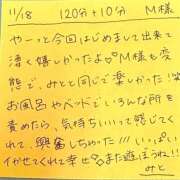 11/18　120分+10分　M様
やーっと今回はじめまして出来て
凄く嬉しかったよ♡M様も変
態で、みとと同じで楽しかった!
お風呂やベッドでいろんな所を
責められて、気持ちいいって感じてく
れて、興奮しちゃった!!!いっぱい
イかせてくれて幸せ また遊ぼうね!!
みと